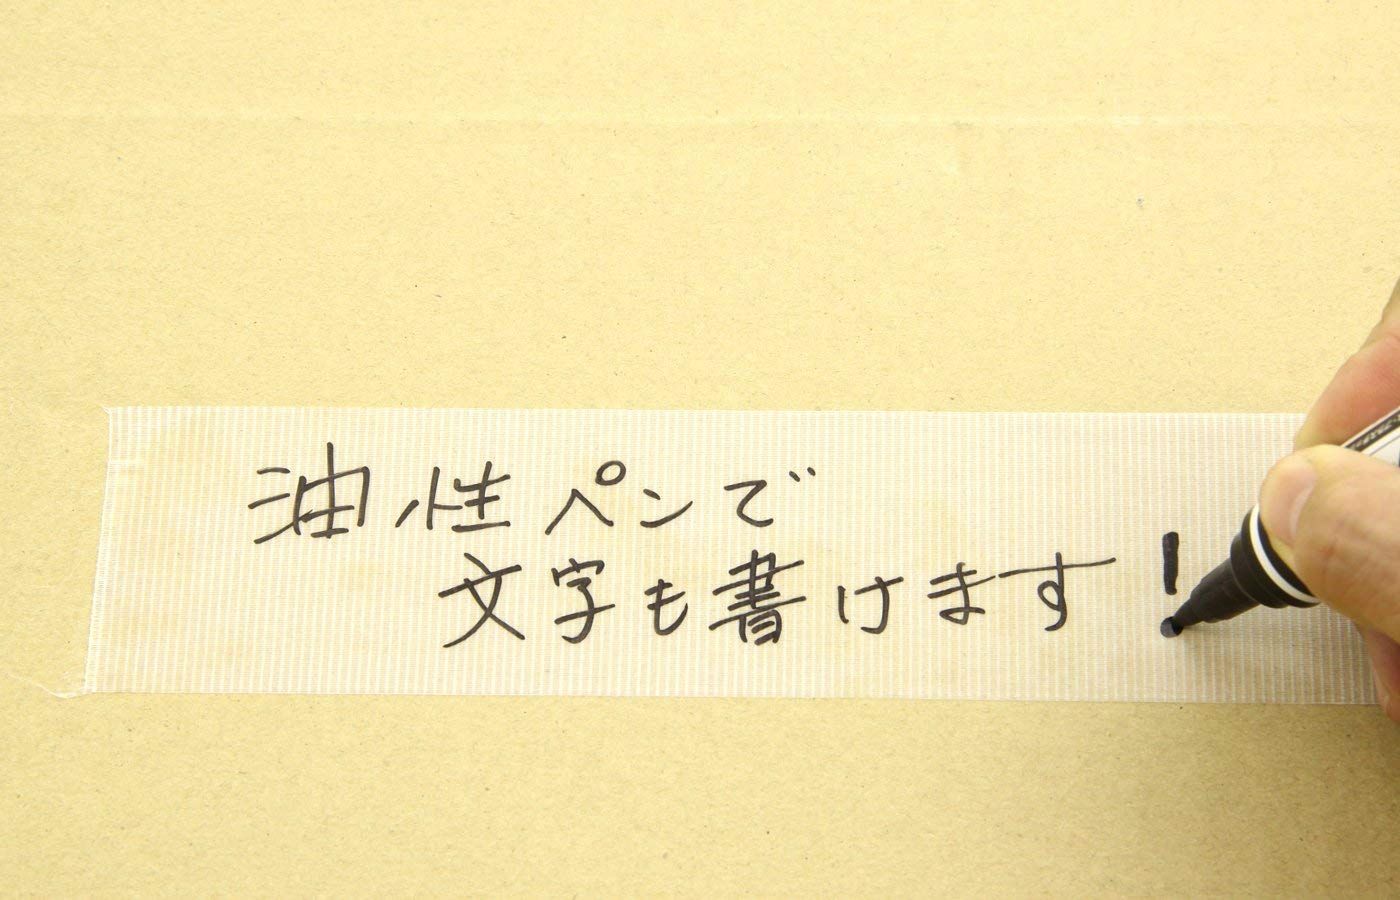 油性ペンで
文字も書けます!